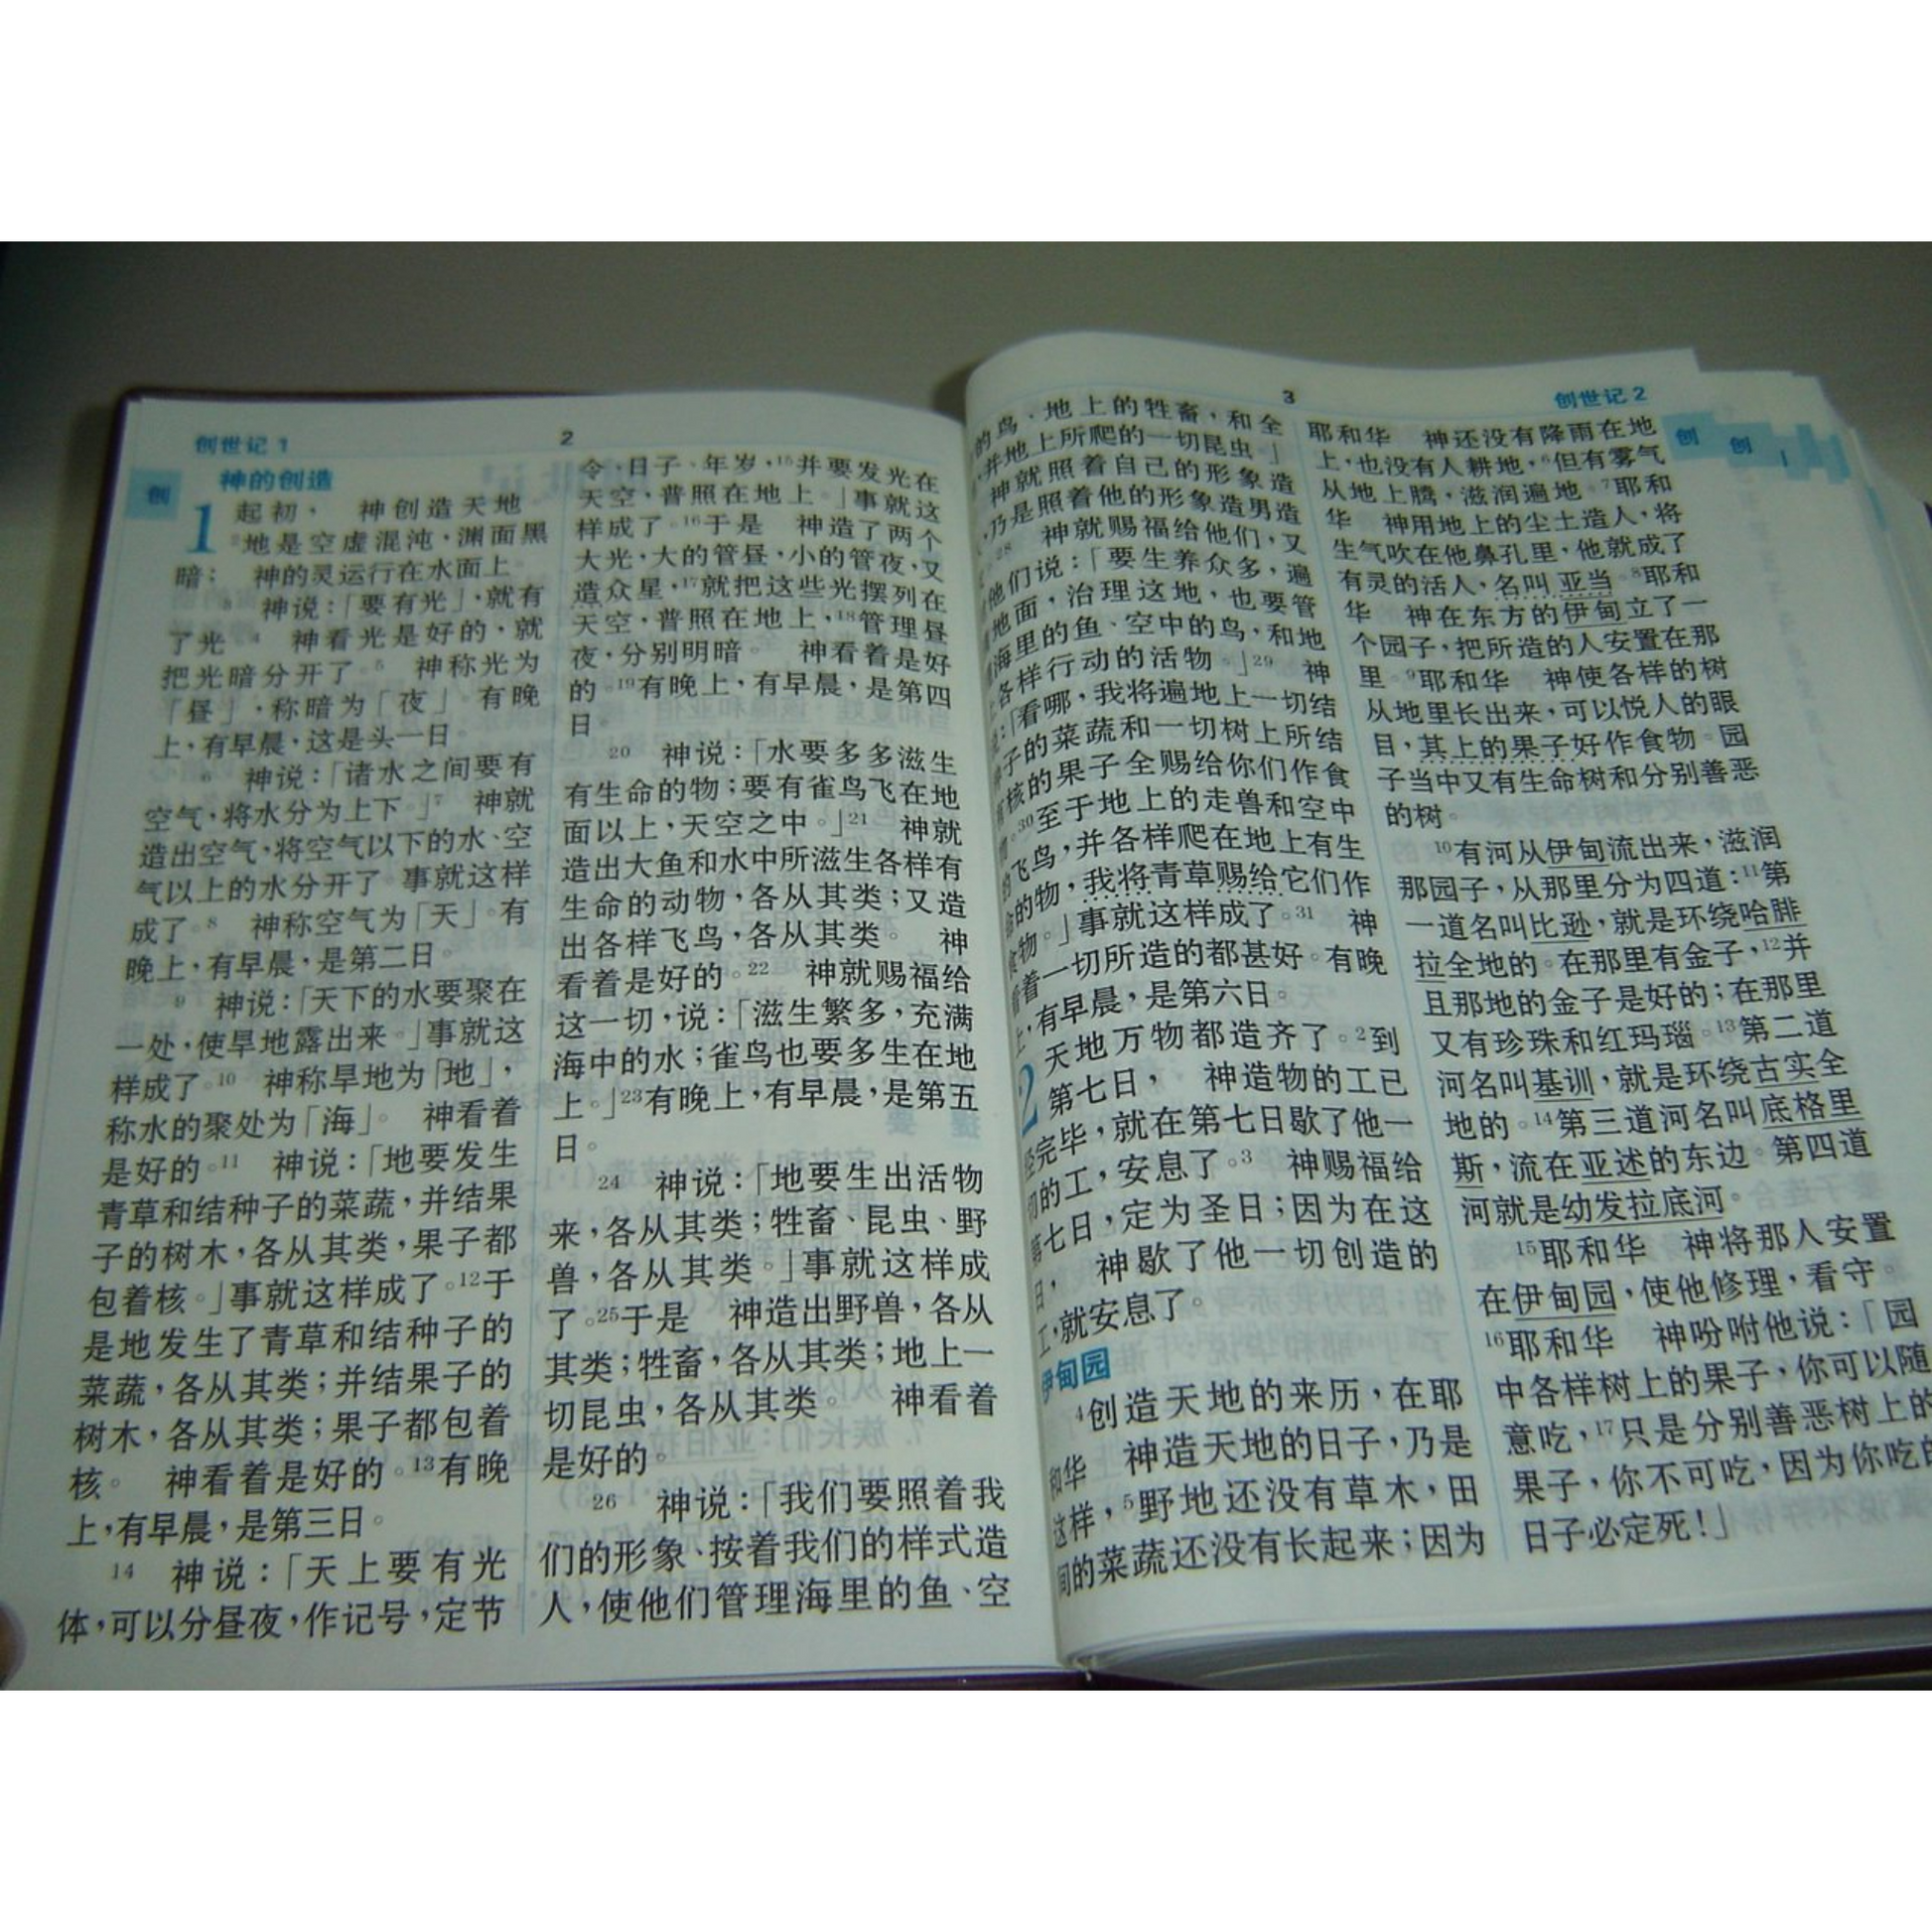 创世记 1
2
创
神的创造
1
起初， 神创造天地
²地是空虚混沌，渊面黑
暗； 神的灵运行在水面上
³ 神说：「要有光」，就有
了光 ⁴ 神看光是好的，就
把光暗分开了。⁵ 神称光为
「昼」，称暗为「夜」 有晚
上，有早晨，这是头一日
⁶ 神说：「诸水之间要有
空气，将水分为上下。」⁷ 神就
造出空气，将空气以下的水、空
气以上的水分开了 事就这样
成了。⁸ 神称空气为「天」。有
晚上，有早晨，是第二日。
⁹ 神说：「天下的水要聚在
一处，使旱地露出来。」事就这
样成了。¹⁰ 神称旱地为「地」，
称水的聚处为「海」。 神看着
是好的。¹¹ 神说：「地要发生
青草和结种子的菜蔬，并结果
子的树木，各从其类，果子都
包着核。」事就这样成了。¹²于
是地发生了青草和结种子的
菜蔬，各从其类；并结果子的
树木，各从其类；果子都包着
核。 神看着是好的。¹³有晚
上，有早晨，是第三日。
¹⁴ 神说：「天上要有光
体，可以分昼夜，作记号，定节
令、日子、年岁，¹⁵并要发光在
天空，普照在地上。」事就这
样成了。¹⁶于是 神造了两个
大光，大的管昼，小的管夜，又
造众星，¹⁷就把这些光摆列在
天空，普照在地上，¹⁸管理昼
夜，分别明暗。 神看着是好
的。¹⁹有晚上，有早晨，是第四
日。
²⁰ 神说：「水要多多滋生
有生命的物；要有雀鸟飞在地
面以上，天空之中。」²¹ 神就
造出大鱼和水中所滋生各样有
生命的动物，各从其类；又造
出各样飞鸟，各从其类。 神
看着是好的。²² 神就赐福给
这一切，说：「滋生繁多，充满
海中的水；雀鸟也要多生在地
上。」²³有晚上，有早晨，是第五
日。
²⁴ 神说：「地要生出活物
来，各从其类；牲畜、昆虫、野
兽，各从其类。」事就这样成
了。²⁵于是 神造出野兽，各从
其类；牲畜，各从其类；地上一
切昆虫，各从其类。 神看着
是好的。
²⁶ 神说：「我们要照着我
们的形象、按着我们的样式造
人，使他们管理海里的鱼、空
3
创世记 2
创
创
的鸟、地上的牲畜，和全
，并地上所爬的一切昆虫。」
神就照着自己的形象造
，乃是照着他的形象造男造
²⁸ 神就赐福给他们，又
他们说：「要生养众多，遍
地面，治理这地，也要管
海里的鱼、空中的鸟，和地
各样行动的活物。」²⁹ 神
：「看哪，我将遍地上一切结
子的菜蔬和一切树上所结
核的果子全赐给你们作食
。³⁰至于地上的走兽和空中
的飞鸟，并各样爬在地上有生
命的物，我将青草赐给它们作
食物。」事就这样成了。³¹ 神
看着一切所造的都甚好。有晚
上，有早晨，是第六日。
2
天地万物都造齐了。²到
第七日， 神造物的工已
经完毕，就在第七日歇了他一
切的工，安息了。³ 神赐福给
第七日，定为圣日；因为在这
日， 神歇了他一切创造的
工，就安息了。
伊甸园
⁴创造天地的来历，在耶
和华 神造天地的日子，乃是
这样，⁵野地还没有草木，田
间的菜蔬还没有长起来；因为
耶和华 神还没有降雨在地
上，也没有人耕地，⁶但有雾气
从地上腾，滋润遍地。⁷耶和
华 神用地上的尘土造人，将
生气吹在他鼻孔里，他就成了
有灵的活人，名叫亚当。⁸耶和
华 神在东方的伊甸立了一
个园子，把所造的人安置在那
里。⁹耶和华 神使各样的树
从地里长出来，可以悦人的眼
目，其上的果子好作食物。园
子当中又有生命树和分别善恶
的树。
¹⁰有河从伊甸流出来，滋润
那园子，从那里分为四道：¹¹第
一道名叫比逊，就是环绕哈腓
拉全地的。在那里有金子，¹²并
且那地的金子是好的；在那里
又有珍珠和红玛瑙。¹³第二道
河名叫基训，就是环绕古实全
地的。¹⁴第三道河名叫底格里
斯，流在亚述的东边。第四道
河就是幼发拉底河。
¹⁵耶和华 神将那人安置
在伊甸园，使他修理，看守。
¹⁶耶和华 神吩咐他说：「园
中各样树上的果子，你可以随
意吃，¹⁷只是分别善恶树上的
果子，你不可吃，因为你吃的
日子必定死！」